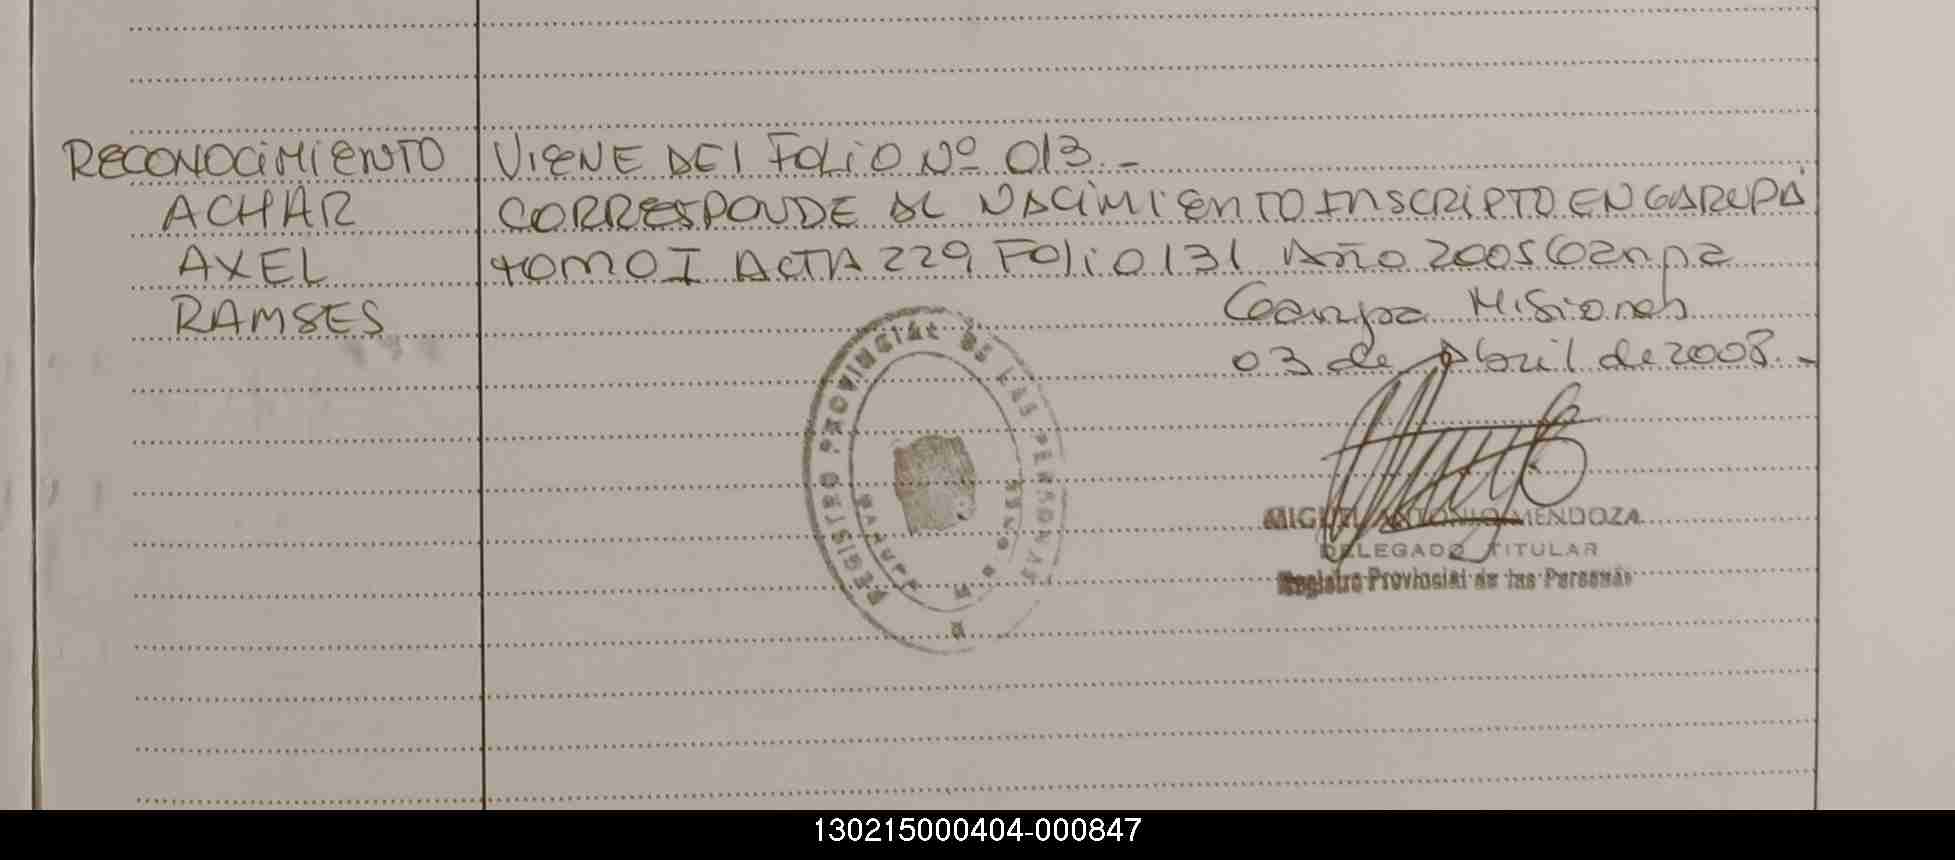 RECONOCIMIENTO VIENE DEL FOLIO Nº 013.-
ACHAR CORRESPONDE AL NACIMIENTO INSCRIPTO EN GARUPÁ
AXEL TOMO I ACTA 229 Folio 131 Año 2005
RAMSES Misiones
03 de Abril de 2008.-
REGISTRO PROVINCIAL DE LAS PERSONAS
MIGUEL ANTONIO MENDOZA
DELEGADO TITULAR
Registro Provincial de las Personas
130215000404-000847